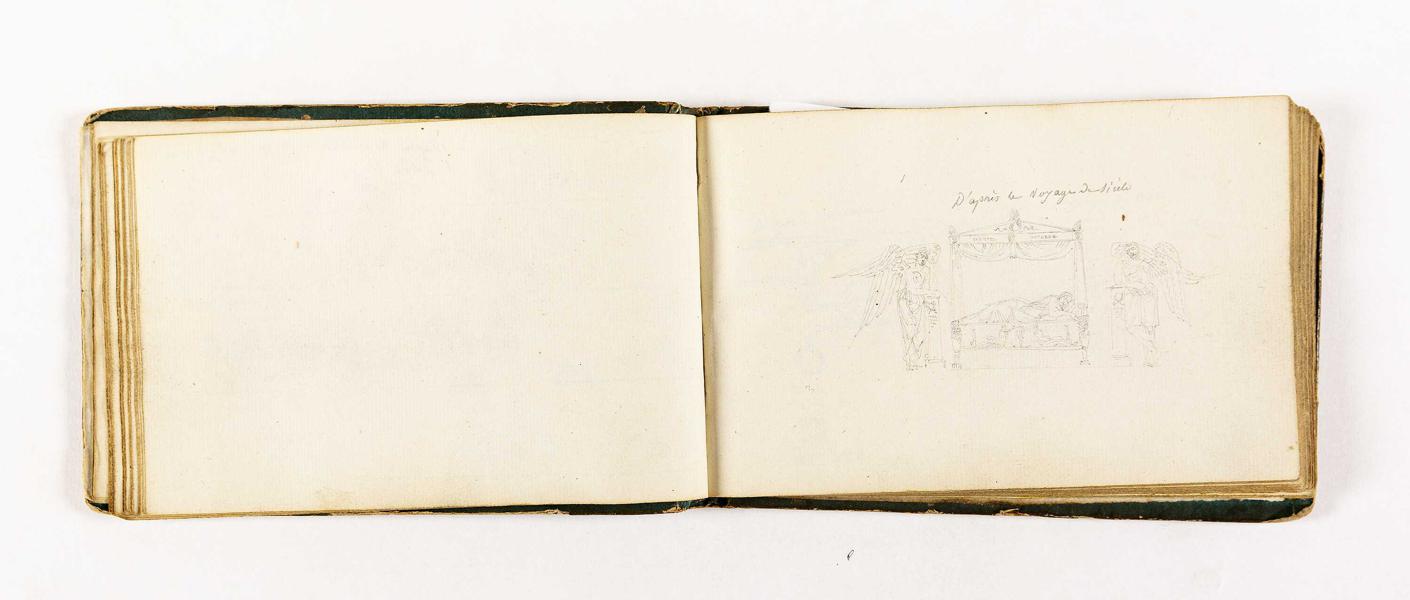 D'après le Voyage de Sicile